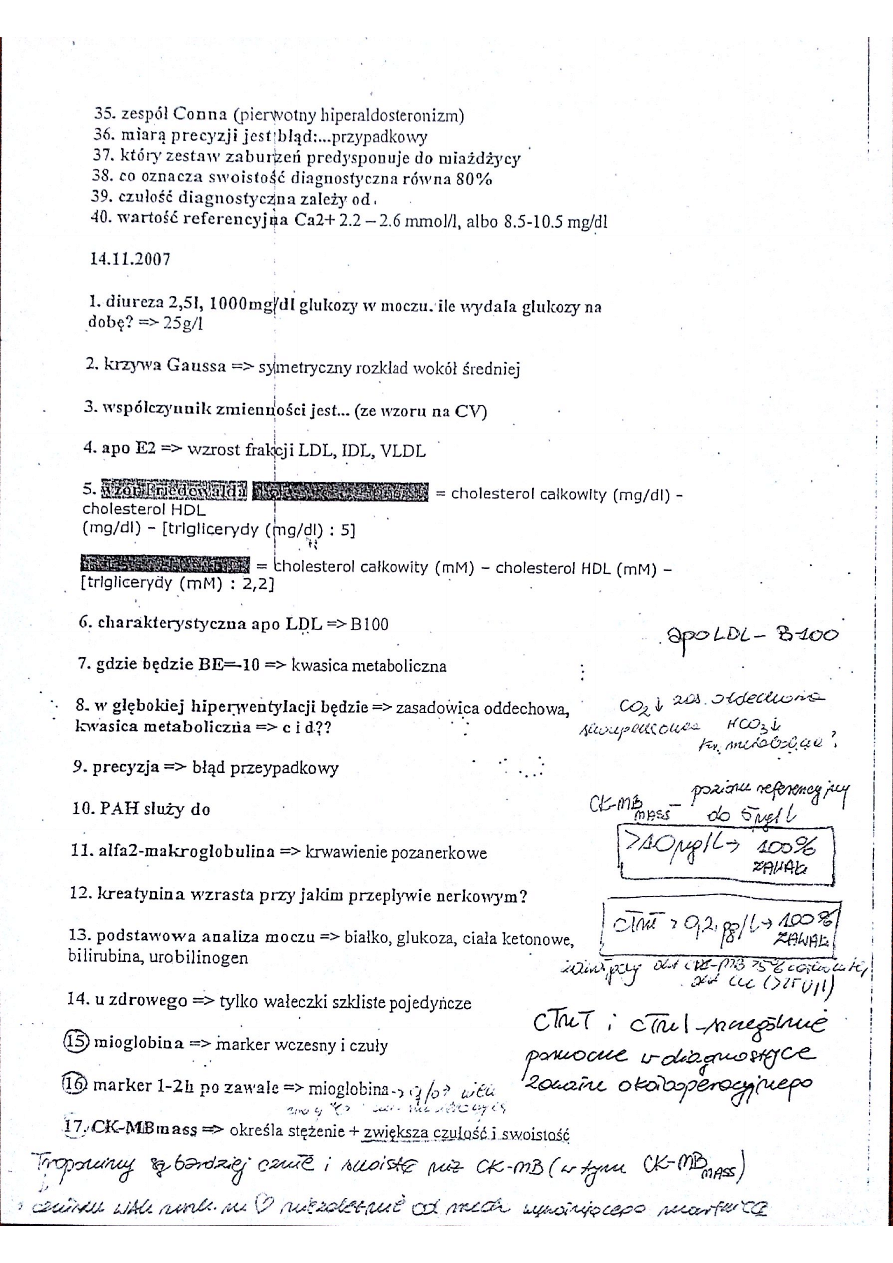 35. zespół Conna (pierwotny hiperaldosteronizm)
36. miarą precyzji jest błąd:...przypadkowy
37. który zestaw zaburzeń predysponuje do miażdżycy
38. co oznacza swoistość diagnostyczna równa 80%
39. czułość diagnostyczna zależy od.
40. wartość referencyjna Ca2+ 2.2 – 2.6 mmol/l, albo 8.5-10.5 mg/dl
14.11.2007
1. diureza 2,5l, 1000mg/dl glukozy w moczu. ile wydala glukozy na
dobę? => 25g/l
2. krzywa Gaussa => symetryczny rozkład wokół średniej
3. współczynnik zmienności jest... (ze wzoru na CV)
4. apo E2 => wzrost frakcji LDL, IDL, VLDL
5. wzór Friedewalda = cholesterol całkowity (mg/dl) –
cholesterol HDL
(mg/dl) – [trIglicerydy (mg/dl) : 5]
= cholesterol całkowity (mM) – cholesterol HDL (mM) –
[trIglicerydy (mM) : 2,2]
6. charakterystyczna apo LDL => B100
apo LDL – B-100
7. gdzie będzie BE=-10 => kwasica metaboliczna
8. w głębokiej hiperwentylacji będzie => zasadowica oddechowa,
kwasica metaboliczna => c i d??
CO2↓ zas. oddechowa
HCO3↓
9. precyzja => błąd przeypadkowy
10. PAH służy do
CK-MB mass – poziom referencyjny
do 5 µg/L
11. alfa2-makroglobulina => krwawienie pozanerkowe
>10 µg/L → 100%
ZAWAŁ
12. kreatynina wzrasta przy jakim przepływie nerkowym?
cTnT > 0,2 µg/L → 100%
ZAWAŁ
13. podstawowa analiza moczu => białko, glukoza, ciała ketonowe,
bilirubina, urobilinogen
14. u zdrowego => tylko wałeczki szkliste pojedyńcze
cTnT i cTnI – szczególnie
pomocne w diagnostyce
zawału okołooperacyjnego
15 mioglobina => marker wczesny i czuły
16 marker 1-2h po zawale => mioglobina
17. CK-MBmass => określa stężenie + zwiększa czułość i swoistość
Troponiny są bardziej czułe i swoiste niż CK-MB (w tym CK-MB MASS)
niezależnie od